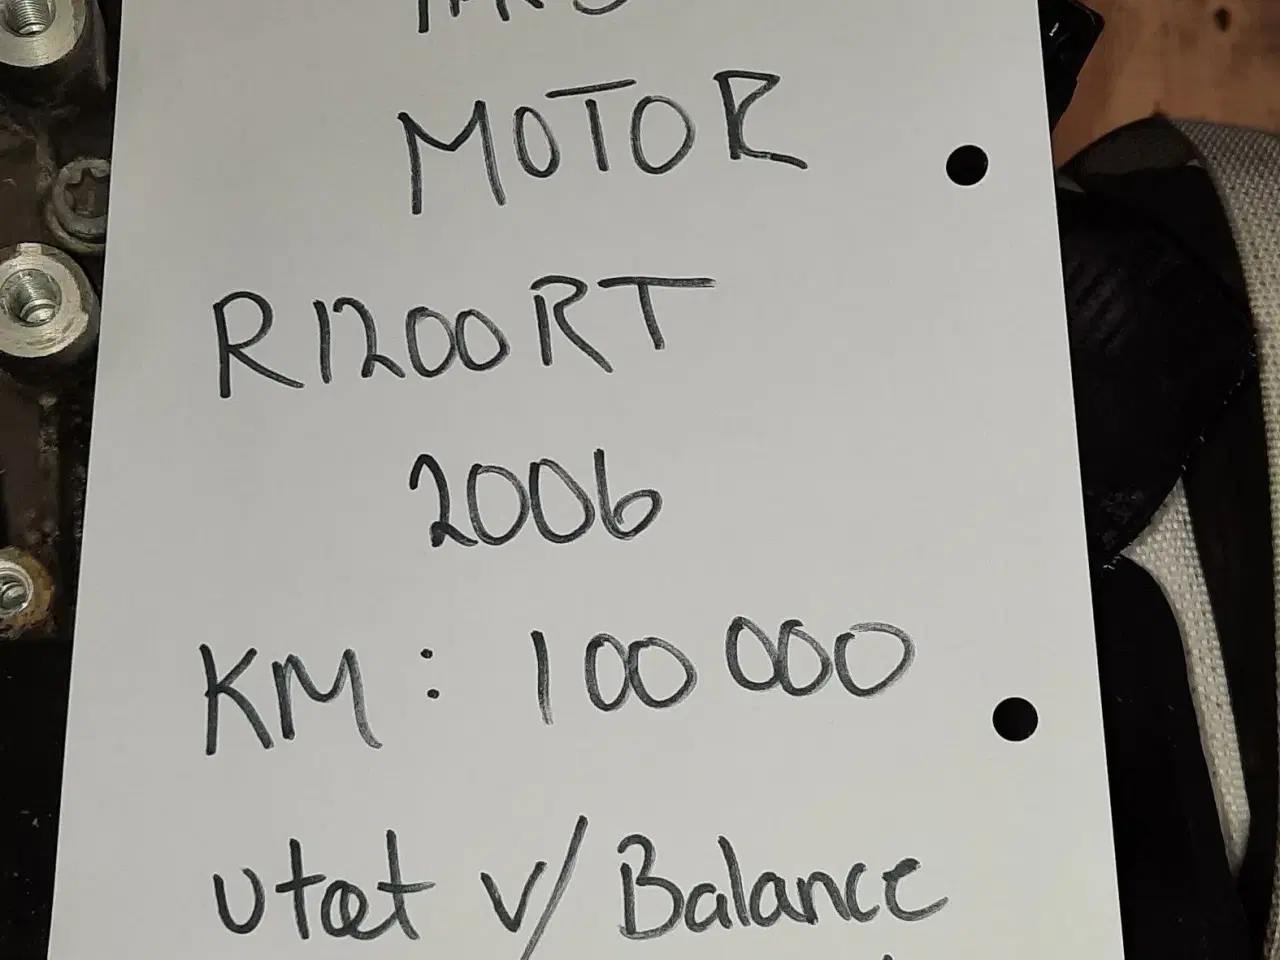 MOTOR
R1200RT
2006
KM: 100 000
utæt v/ Balance